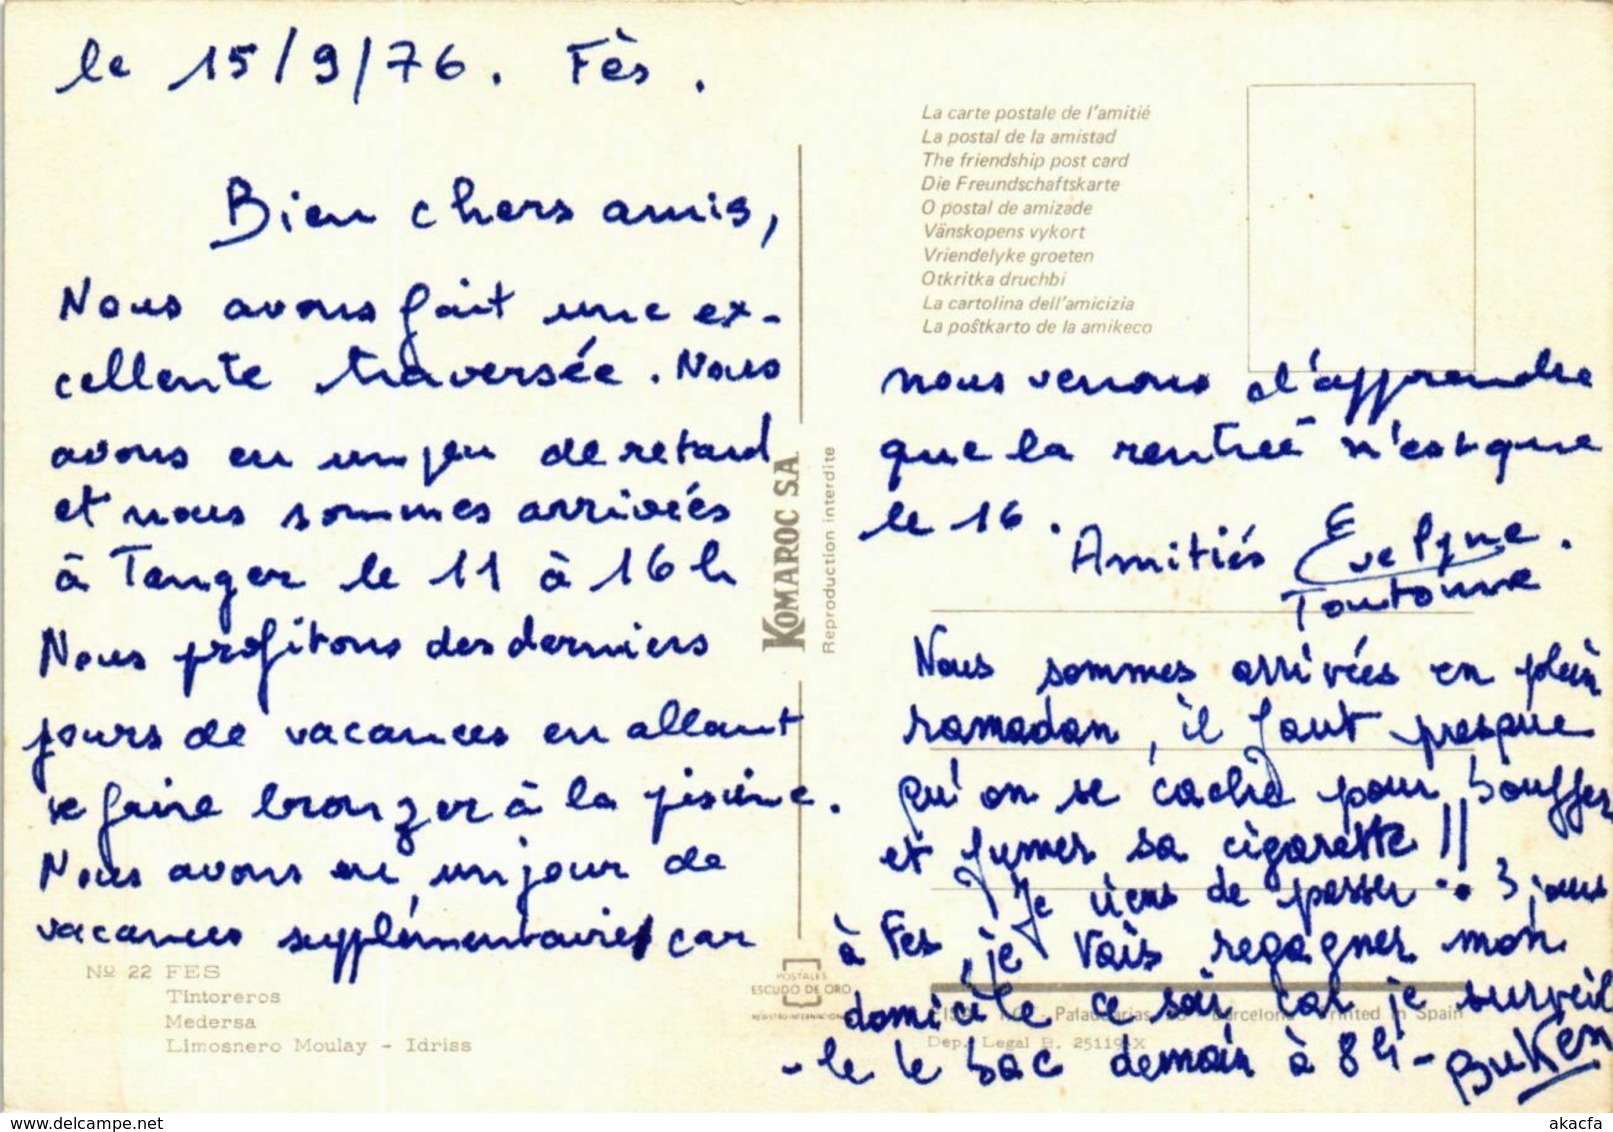 le 15/9/76. Fès.
Bien chers amis,
Nous avons fait une ex-
cellente traversée. Nous
avons eu un peu de retard
et nous sommes arrivées
à Tanger le 11 à 16h
Nous profitons des derniers
jours de vacances en allant
se faire bronzer à la piscine.
Nous avons eu un jour de
vacances supplémentaire car
Nº 22 FES
Tintoreros
Medersa
Limosnero Moulay - Idriss
KOMAROC S.A.
Reproduction interdite
POSTALES
ESCUDO DE ORO
La carte postale de l'amitié
La postal de la amistad
The friendship post card
Die Freundschaftskarte
O postal de amizade
Vänskopens vykort
Vriendelyke groeten
Otkritka druchbi
La cartolina dell'amicizia
La poŝtkarto de la amikeco
nous venons d'apprendre
que la rentrée n'est que
le 16.
Amitiés Evelyne.
Toutoune
Nous sommes arrivées en plein
ramadan, il faut presque
qu'on se cache pour bouffer
et fumer sa cigarette !!
Je viens de passer 3 jours
à Fes, je vais regagner mon
domicile ce soir car je surveil
-le le bac demain à 8h-
Palaudarias Barcelona Printed in Spain
Dep. Legal B. 25119-X
www.delcampe.net
akacfa